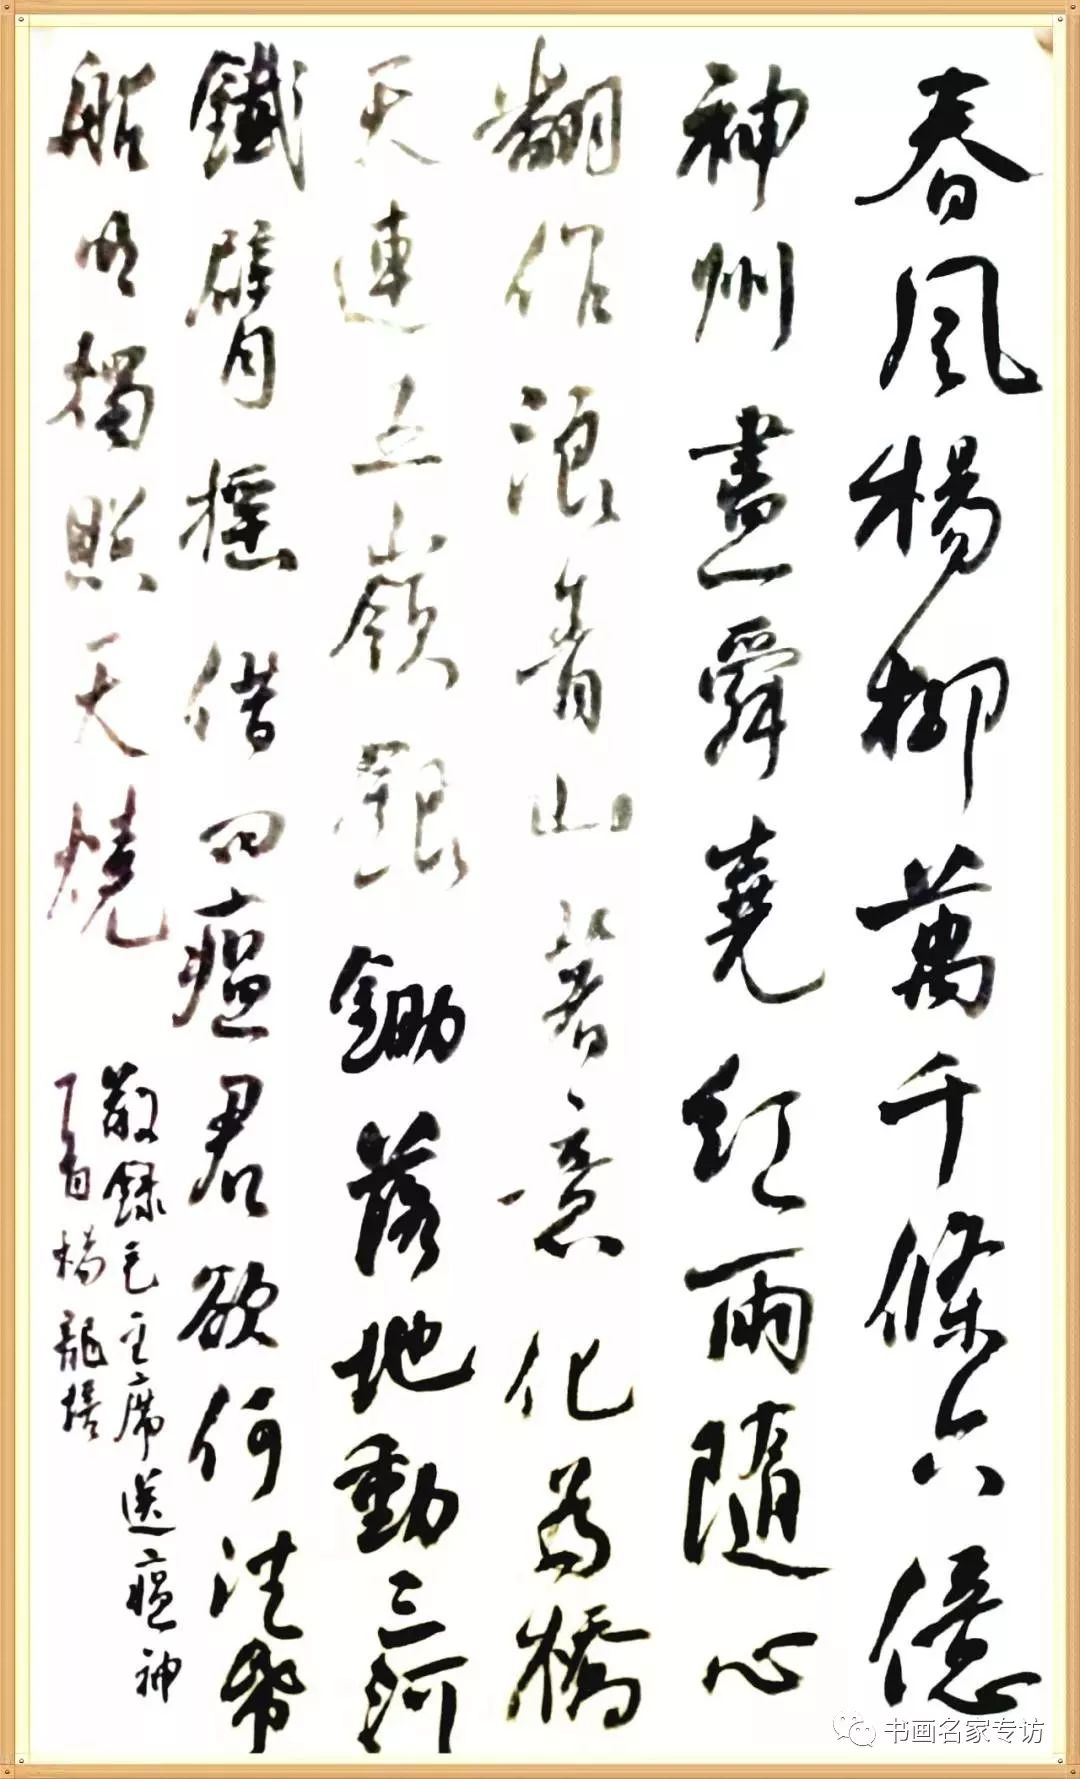 春風楊柳萬千條六億
神州盡舜堯紅雨隨心
翻作浪青山著意化為橋
天連五嶺銀鋤落地動三河
鐵臂搖借問瘟君欲何往帋
船明燭照天燒
敬錄毛主席送瘟神
丁酉楊龍
书画名家专访